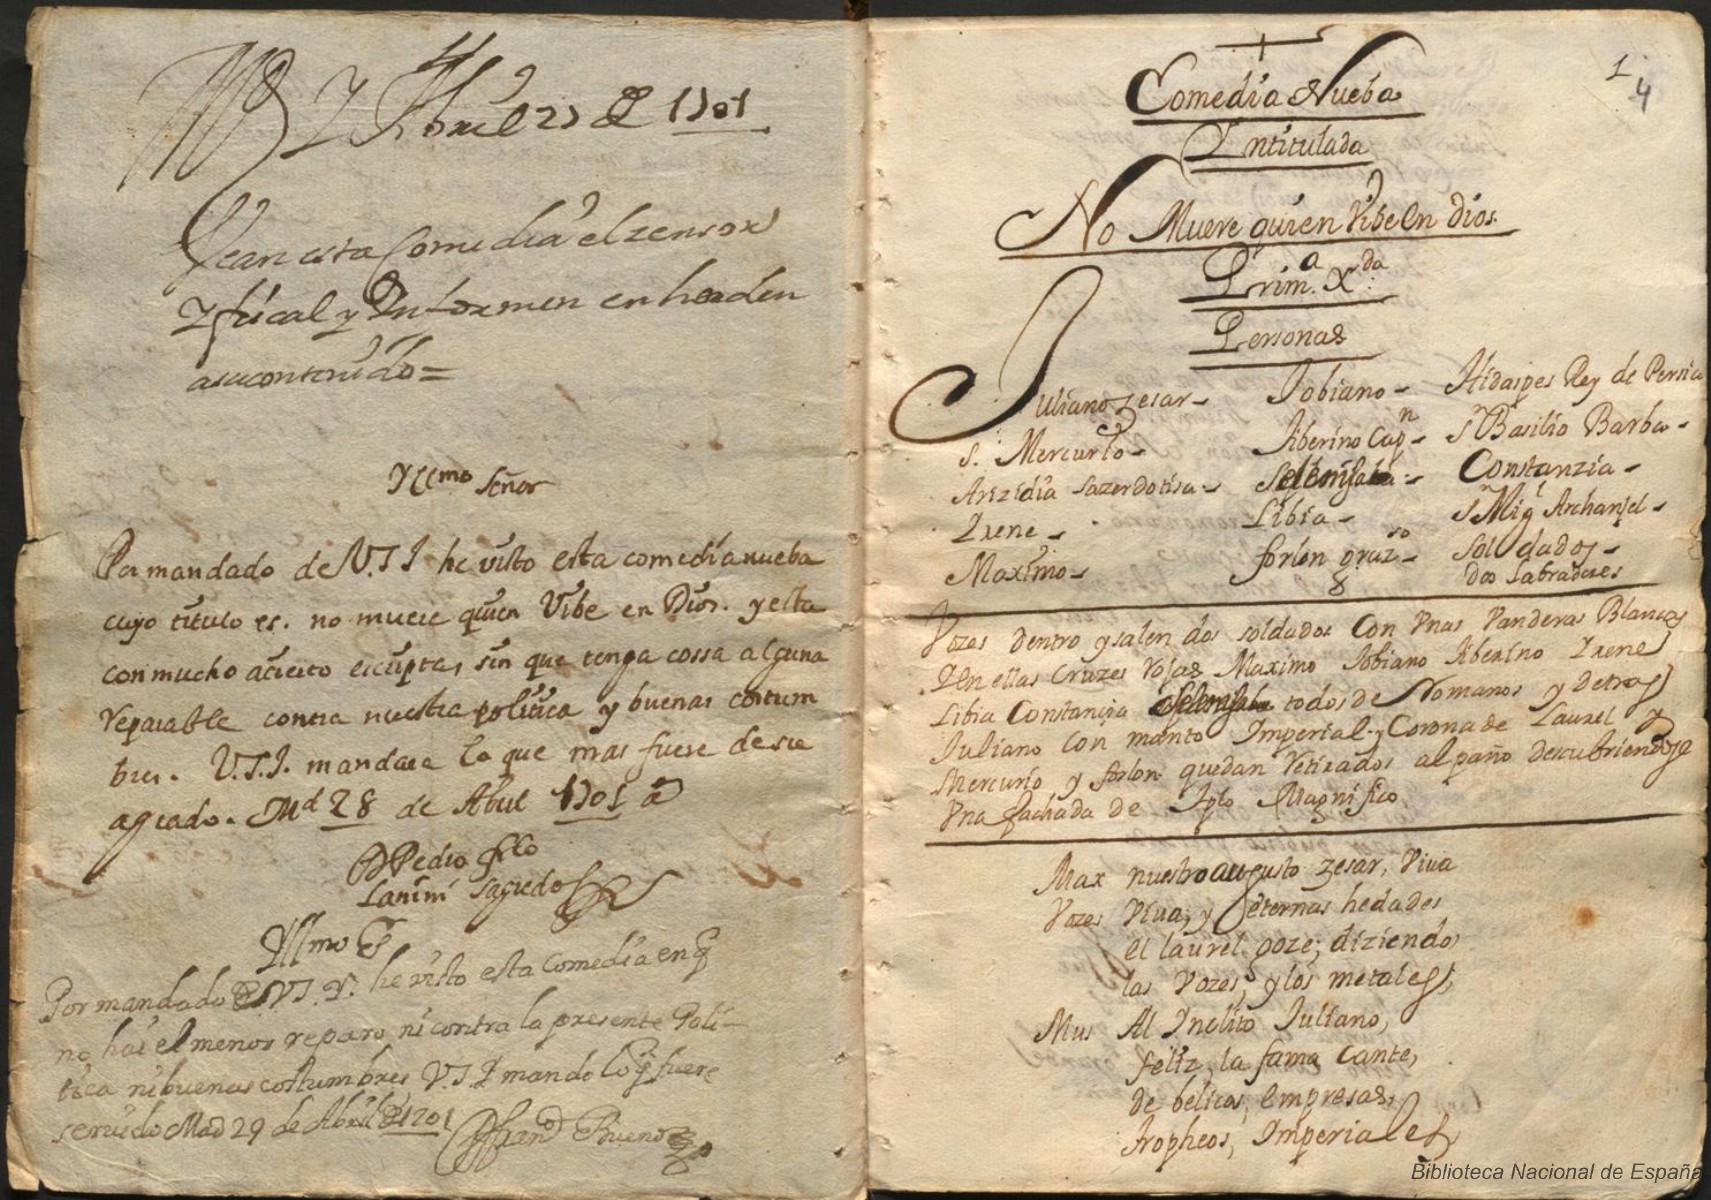 Md y Abril 27 de 1701
Vean esta Comedia el zensor
y fiscal y Informen en horden
a su contenido=
Yllmo Señor
Por mandado de V.S.I. he visto esta comedia nueba
cuyo titulo es. no muere quien Vibe en Dios. y esta
con mucho acierto escripta, sin que tenga cossa alguna
reparable contra nuestra politica y buenas costum
bres. V.S.I. mandara lo que mas fuere de su
agrado. Md 28 de Abril 1701 a
D Pedro frco
Lanini Sagredo
Illmo Sr
Por mandado de V.S.Y. he visto esta Comedia en q
no hai el menor reparo ni contra la presente Poli-
tica ni buenas costumbres V.S.I mando lo q fuere
servido Mad 29 de Abril de 1701
Bueno
1
4
Comedia Nueba
Yntitulada
No Muere quien Vibe en Dios.
Prim.a Xda
Personas
Juliano zesar- Jobiano- Hidaspes Rey de Persia
S. Mercurio- Tiberino Capn- Sn Basilio Barba-
Arizidia sazerdotisa- Constanzia-
Yrene- Libia- Sn Migl Archanjel-
Maximo- forlon grazso- Soldados-
Dos Labradores
Vozes dentro y salen dos soldados Con Vnas Vanderas Blancas
Y En ellas Cruzes Rojas Maximo Jobiano Tiberino Yrene
Libia Constanzia todos de Romanos y detras
Juliano Con manto Imperial y Corona de Laurel y
Mercurio, y forlon quedan Retirados al paño descubriendose
Vna fachada de Tplo Magnifico
Max nuestro augusto zesar, Viva
Vozes Viva, y eternas hedades
el laurel goze; diziendo
las Vozes, y los metales;
Mus Al Ynclito Juliano,
feliz, la fama Cante,
de belicas, empresas,
tropheos, Imperiales,
Biblioteca Nacional de España